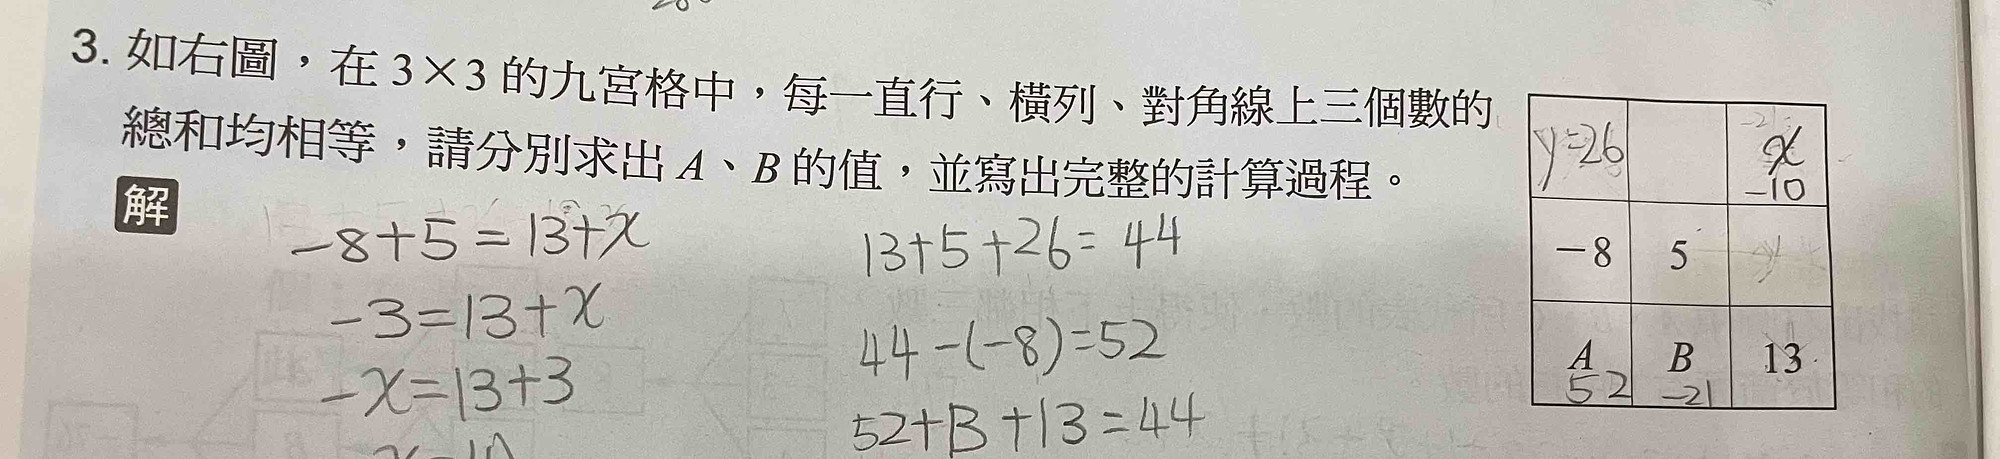 3. 如右圖，在 3×3 的九宮格中，每一直行、橫列、對角線上三個數的
總和均相等，請分別求出 A、B 的值，並寫出完整的計算過程。
解
-8+5=13+x
-3=13+x
-x=13+3
13+5+26=44
44-(-8)=52
52+B+13=44
y=26 x
-10
-8 5
A B 13
52 -21